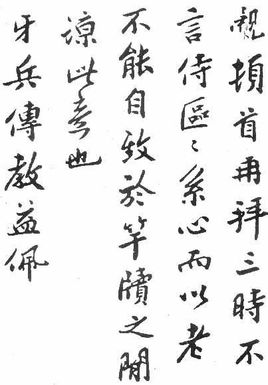 覶頓首再拜三時不
言侍區〻系心而以老
不能自致於竿牘之間
諒此意也
牙兵傳教益佩